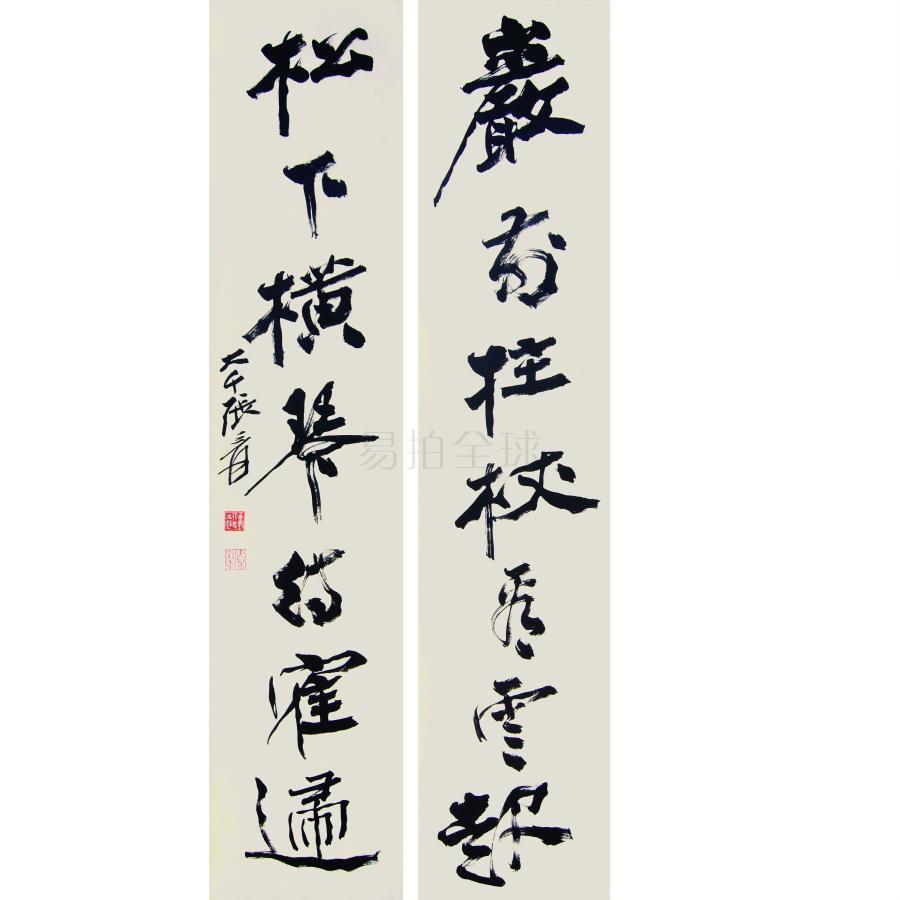 巖前拄杖看雲起
松下橫琴待寉歸
大千張爰
易拍全球